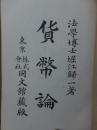 法學博士堀江歸一著
貨幣論
東京 株式會社 同文館藏版